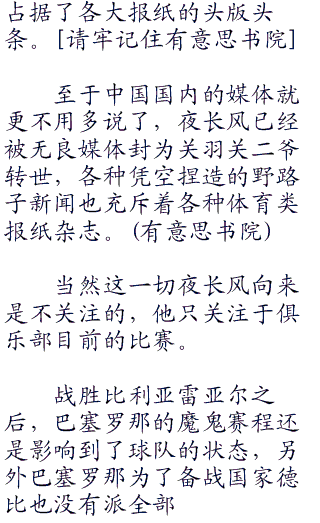 占据了各大报纸的头版头
条。[请牢记住有意思书院]
至于中国国内的媒体就
更不用多说了，夜长风已经
被无良媒体封为关羽关二爷
转世，各种凭空捏造的野路
子新闻也充斥着各种体育类
报纸杂志。(有意思书院)
当然这一切夜长风向来
是不关注的，他只关注于俱
乐部目前的比赛。
战胜比利亚雷亚尔之
后，巴塞罗那的魔鬼赛程还
是影响到了球队的状态，另
外巴塞罗那为了备战国家德
比也没有派全部